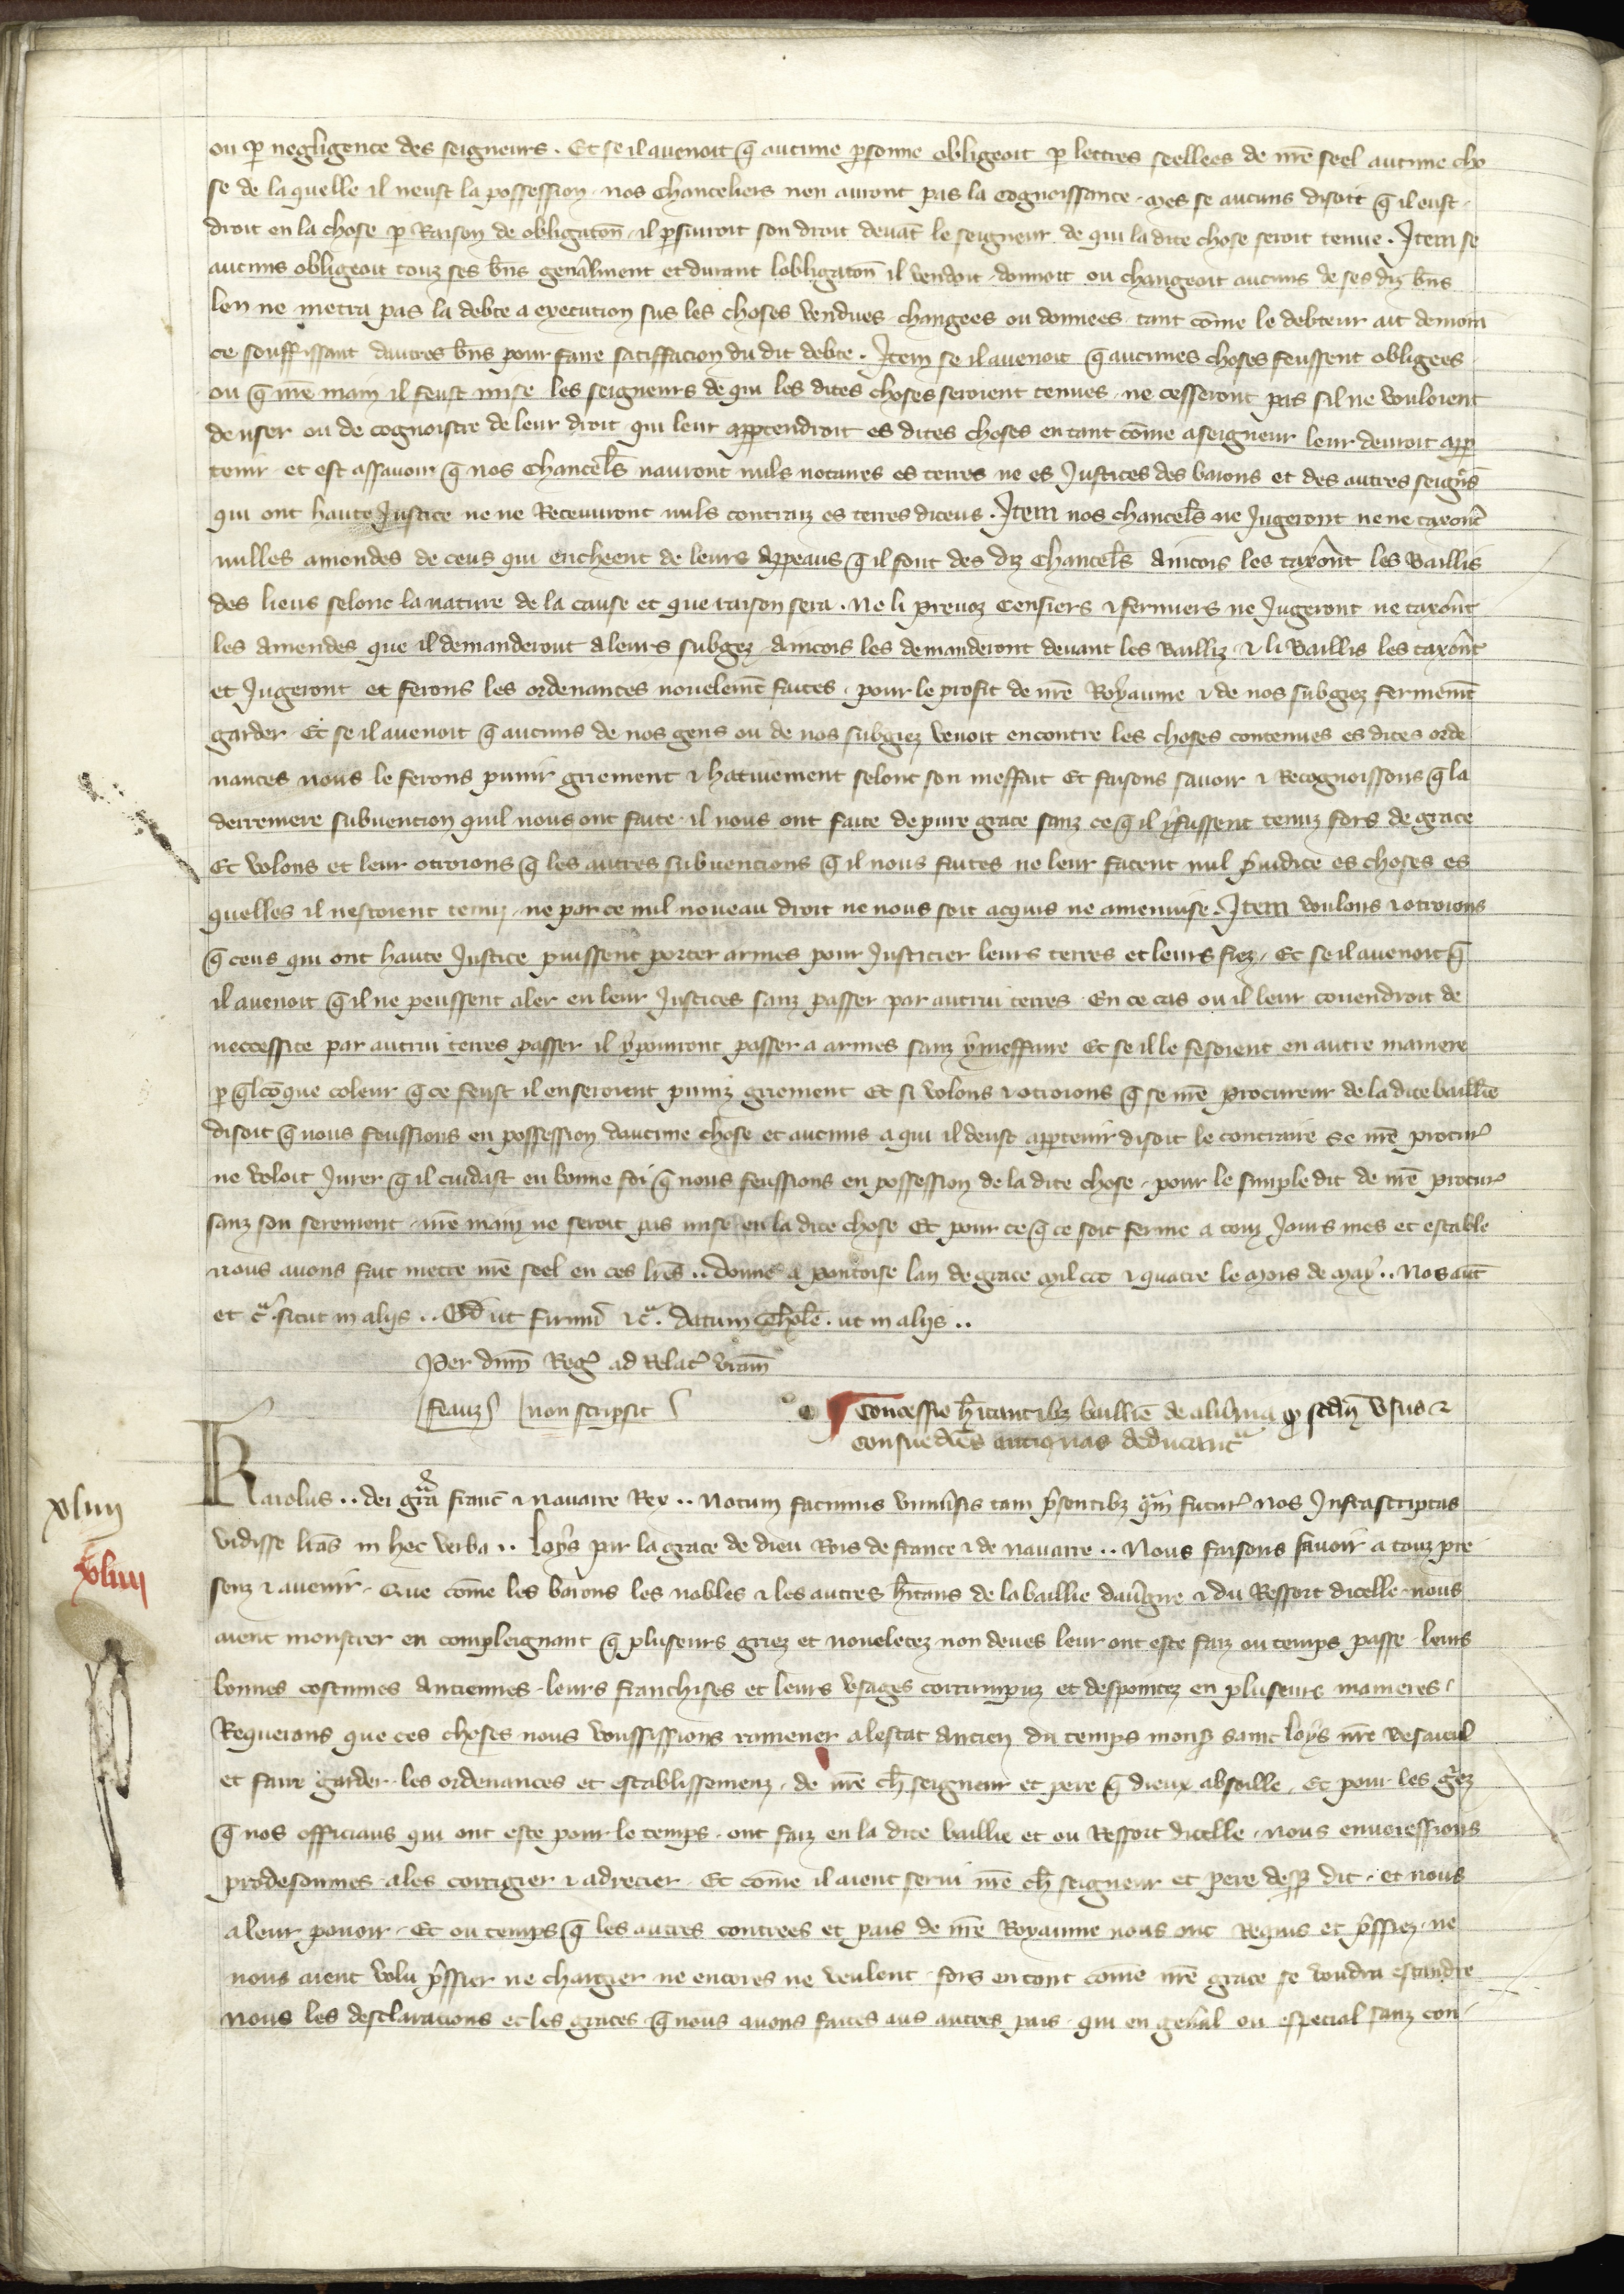 ou p negligence des seigneurs . Et se il auenoit q̄ aucune psonne obligeoit p lettres seellees de nr̄e seel aucune cho
se de la quelle il neust la possession . nos Chanceliers nen auront pas la Cognoissance . Mes se aucuns disoit q̄ il eust .
droit en la chose p Raison de obligatōn . il psuiuroit son droit deuāt le seigneur de qui la dite chose seroit tenue . Item se
aucuns obligeoit touz ses bn̄s genālment et durant lobligatōn il vendoit . donnoit ou changeoit aucuns de ses diz bn̄s
len ne metra pas la debte a execution sus les choses vendues changees ou donnees . tant cōme le debteur ait demora
ce souffissant dautres bn̄s pour faire satiffacion du dit debte . Item se il auenoit q̄ aucunes choses feussent obligees
ou q̄ nr̄e main il feust mise les seigneurs de qui les dites choses seroient tenues . ne cesseront pas sil ne vouloient
de user ou de cognoistre de leur droit qui leur apptendroit es dites choses en tant cōme a seigneur leur deuroit app
tenir et est assauoir q̄ nos Chancel̄s nauront nuls notaires es terres ne es Justices des barons et des autres seign̄s
qui ont haute Justice ne ne Receuuront nuls contraiz es terres diceus . Item nos chancel̄s ne Jugeront ne ne taxōnt
nulles amendes de ceus qui encheent de leurs Appeaus q̄ il font des diz Chancel̄s Aincois les taxōnt les Baillis
des lieus selonc la nature de la cause et que raison sera . Ne li preuoz Censiers ⁊ fermiers ne Jugeront ne taxōnt
les Amendes que il demanderont a leurs subgez Aincois les demanderont deuant les Bailliz ⁊ li Baillis les taxōnt
et Jugeront et ferons les ordenances nouelemt̄ faites . pour le profit de nr̄e Royaume ⁊ de nos subgiez fermemt̄
garder Et se il auenoit q̄ aucuns de nos gens ou de nos subgiez venoit encontre les choses contenues es dites orde
nances nous le ferons punir griement ⁊ hatiuement selonc son meffait Et faisons sauoir ⁊ Recognoissons q̄ la
derreniere subuencion quil nous ont faite . il nous ont faite de pure grace sanz ce q̄ il y fussent tenuz fors de grace
Et volons et leur otroions q̄ les autres subuencions q̄ il nous faites ne leur facent nul p̄iudice es choses es
quelles il nestoient tenuz . ne par ce nul noueau droit ne nous soit acquis ne amenuise . Item voulons ⁊ otroions
q̄ ceus qui ont haute Justice puissent porter armes pour Justicier leurs terres et leurs fiez . Et se il auenoit q̄
il auenoit q̄ il ne peussent aler en leur Justices sanz passer par autrui terres . En ce cas ou il leur couendroit de
neccessite par autrui terres passer il y pourront passer a armes sanz y meffaire Et se il le fesoient en autre maniere
p q̄lcōque coleur q̄ ce feust il en seroient puniz griement Et si volons ⁊ otroions q̄ se nr̄e Procureur de la dite baillīe
disoit q̄ nous feussions en possession daucune chose et aucuns a qui il deust apptenir disoit le contraire se nr̄e procur̄
ne voloit Jurer q̄ il cuidast en bonne foi q̄ nous feussions en possession de la dite chose . pour le simple dit de nr̄e procur̄
sanz son serement . nr̄e main ne seroit pas mise en la dite chose Et pour ce q̄ ce soit ferme a touz Jours mes et estable
nous auons fait mettre nr̄e seel en ces lrēs .. donne a Pontoise lan de grace Mil ccc ⁊ quatre le Mois de May .. Nos aut̄
et c̄ᵃ . sicut in alijs .. Qd̄ ut firmū ⁊ c̄ᵃ . datum Thol̄e . ut in alijs ..
Per dnm̄ Reg̃ ad Relac̃ vram̄
Feauz non scripsit
Concessio hītantibz baillīe de aluernia qd̄ scdm̄ vsus ⁊
consuetdīes antiquas deducant̄
Karolus .. dei gr̄a franc̄ ⁊ Nauarre Rex .. Notum facimus vniu̇sis tam p̄sentibz qᵃm̄ futur̃ Nos Infrascriptas
vidisse lrās in hec verba .. Loys par la grace de dieu Rois de france ⁊ de nauarre .. Nous faisons sauoir a touz pre
senz ⁊ auenir . Que cōme les barons les nobles ⁊ les autres hītans de la baillie dauu̇gne ⁊ du Ressort dicelle . nous
aient monstrer en compleignant q̄ pluseurs griez et noueletez non deues leur ont este faiz ou temps passe . leurs
bonnes costumes Anciennes . leurs franchises et leurs vsages corrumpuz et despointez en pluseurs manieres .
Requerans que ces choses nous vousissions ramener a lestat Ancien du temps monsʳ saint loys nr̄e besaieul
et faire garder . les ordenances et establissemenz . de nr̄e ch̄ seigneur et pere q̄ dieux absoille . Et pour les griez
q̄ nos officiaus qui ont este pour le temps . ont faiz en la dite baillie et ou Ressort dicelle . nous enuoiessions
prodesoumes . a les corrigier ⁊ adrecier . Et cōme il aient serui nr̄e ch̄ seigneur et pere desp dit . et nous
a leur pouoir . Et ou temps q̄ les autres contrees et pais de nr̄e Royaume nous ont Requis et p̄ssiez . ne
nous aient volu p̄ssier ne chargier ne encores ne veulent . fors en tant cōme nr̄e grace se voudra estandre
Nous les desclaracions et les graces . q̄ nous auons faites aus autres pais . qui en geneāl ou especial sanz con
xliiii
xliiii